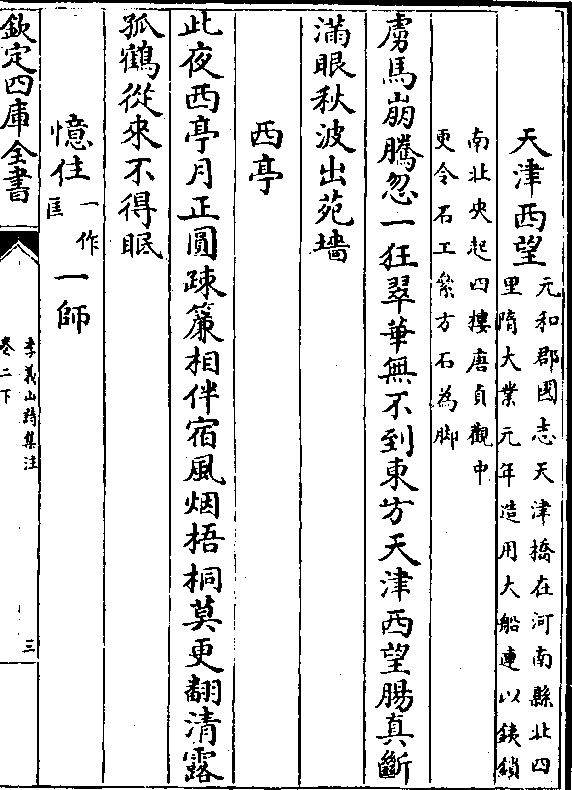 天津西望
元和郡國志天津橋在河南縣北四
里隋大業元年造用大船連以鐵鎖
南北夾起四樓唐貞觀中
更令石工絫方石為脚
虜馬崩騰忽一狂翠華無不到東方天津西望腸真斷
滿眼秋波出苑墻
西亭
此夜西亭月正圓疎簾相伴宿風烟梧桐莫更翻清露
孤鶴從來不得眠
憶住一作匡一師
欽定四庫全書
李義山詩集注
卷二下
三